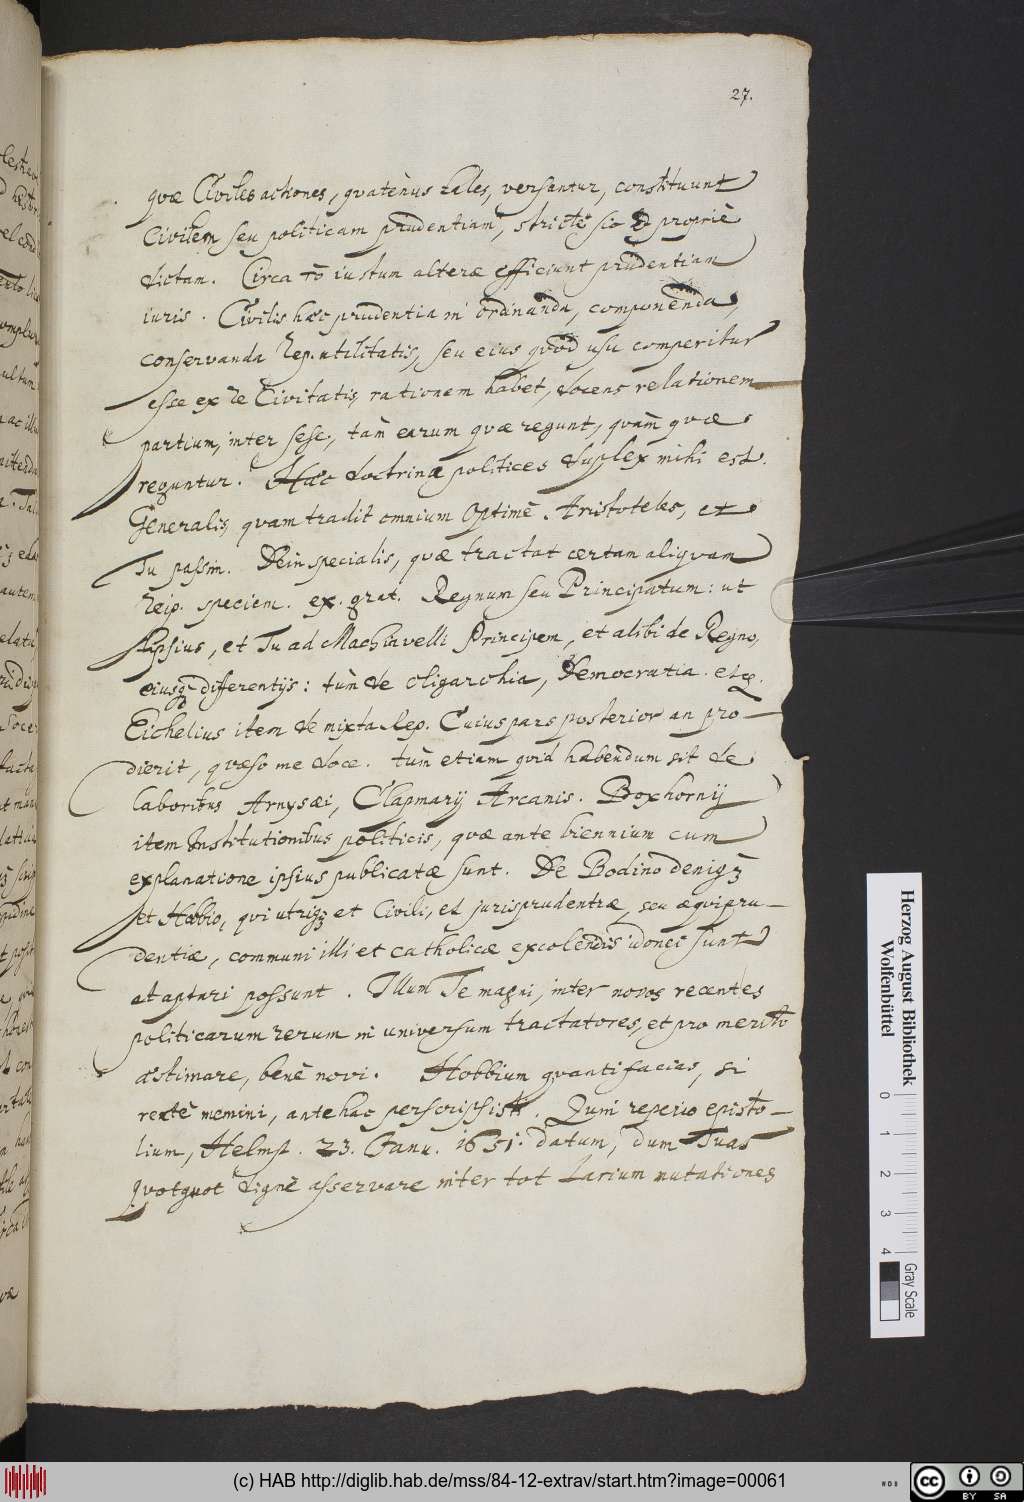 27.
quæ Civiles actiones, quatenùs tales, versantur, constituunt
Civilem seu politicam prudentiam, strictè sic & propriè
dictam. Circa τὸ iustum alteræ efficiunt prudentiam
iuris. Civilis hæc prudentia in ordinanda, componenda,
conservanda Rep. utilitatis, seu eius quod usu comperitur
esse ex re Civitatis, rationem habet, docens relationem
partium, inter sese, tàm earum quæ regunt, quàm quæ
reguntur. Hæc doctrina politices duplex mihi est.
Generalis, quam tradit omnium Optimè Aristoteles, et
Tu passim. Dein specialis, quæ tractat certam aliquam
Reip. speciem. ex. grat. Regnum seu Principatum: ut
Lipsius, et Tu ad Machiavelli Principem, et alibi de Regno,
eiusq differentijs: tùm de oligarchia, Democratia. etc.
Eichelius item de mixta Rep. Cuius pars posterior an pro-
dierit, quæso me doce. tùm etiam quid habendum sit de
laboribus Arnysæi, Clapmarij Arcanis. Boxhornij
item Institutionibus politicis, quæ ante biennium cum
explanatione ipsius publicatæ sunt. De Bodino deniqꝫ
et Hobbio, qui utriqꝫ et Civili, et jurisprudentiæ, seu æquipru-
dentiæ, communi illi et catholicæ excolendis idonei sunt
et aptari possunt. Illum Te magni, inter novos recentes
politicarum rerum in universum tractatores, et pro merito
æstimare, benè novi. Hobbium quanti facias, si
rectè memini, antehac perscripsisti. Quin reperio episto-
lium, Helmst. 23. Janu. 1651. datum, dum Tuas
quotquot dignè asservare inter tot Larium mutationes
Herzog August Bibliothek
Wolfenbüttel
0 1 2 3 4
Gray Scale
(c) HAB http://diglib.hab.de/mss/84-12-extrav/start.htm?image=00061
cc BY SA